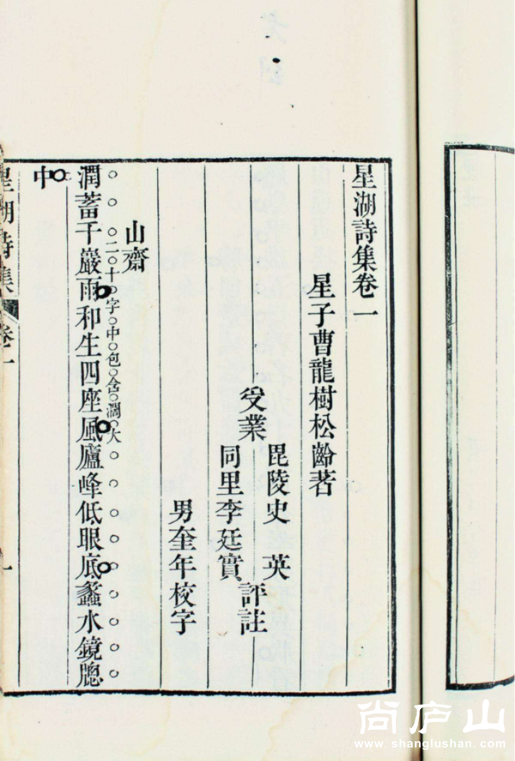 星湖詩集卷一
星子曹龍樹松齡著
受業
毘陵史英
同里李廷實
評註
男奎年校字
山齋
二十字中包含濶大
澗蓄千巖雨和生四座風廬峰低眼底蠡水鏡牕
中
星湖詩集
卷一
一
尚庐山
www.shanglushan.com